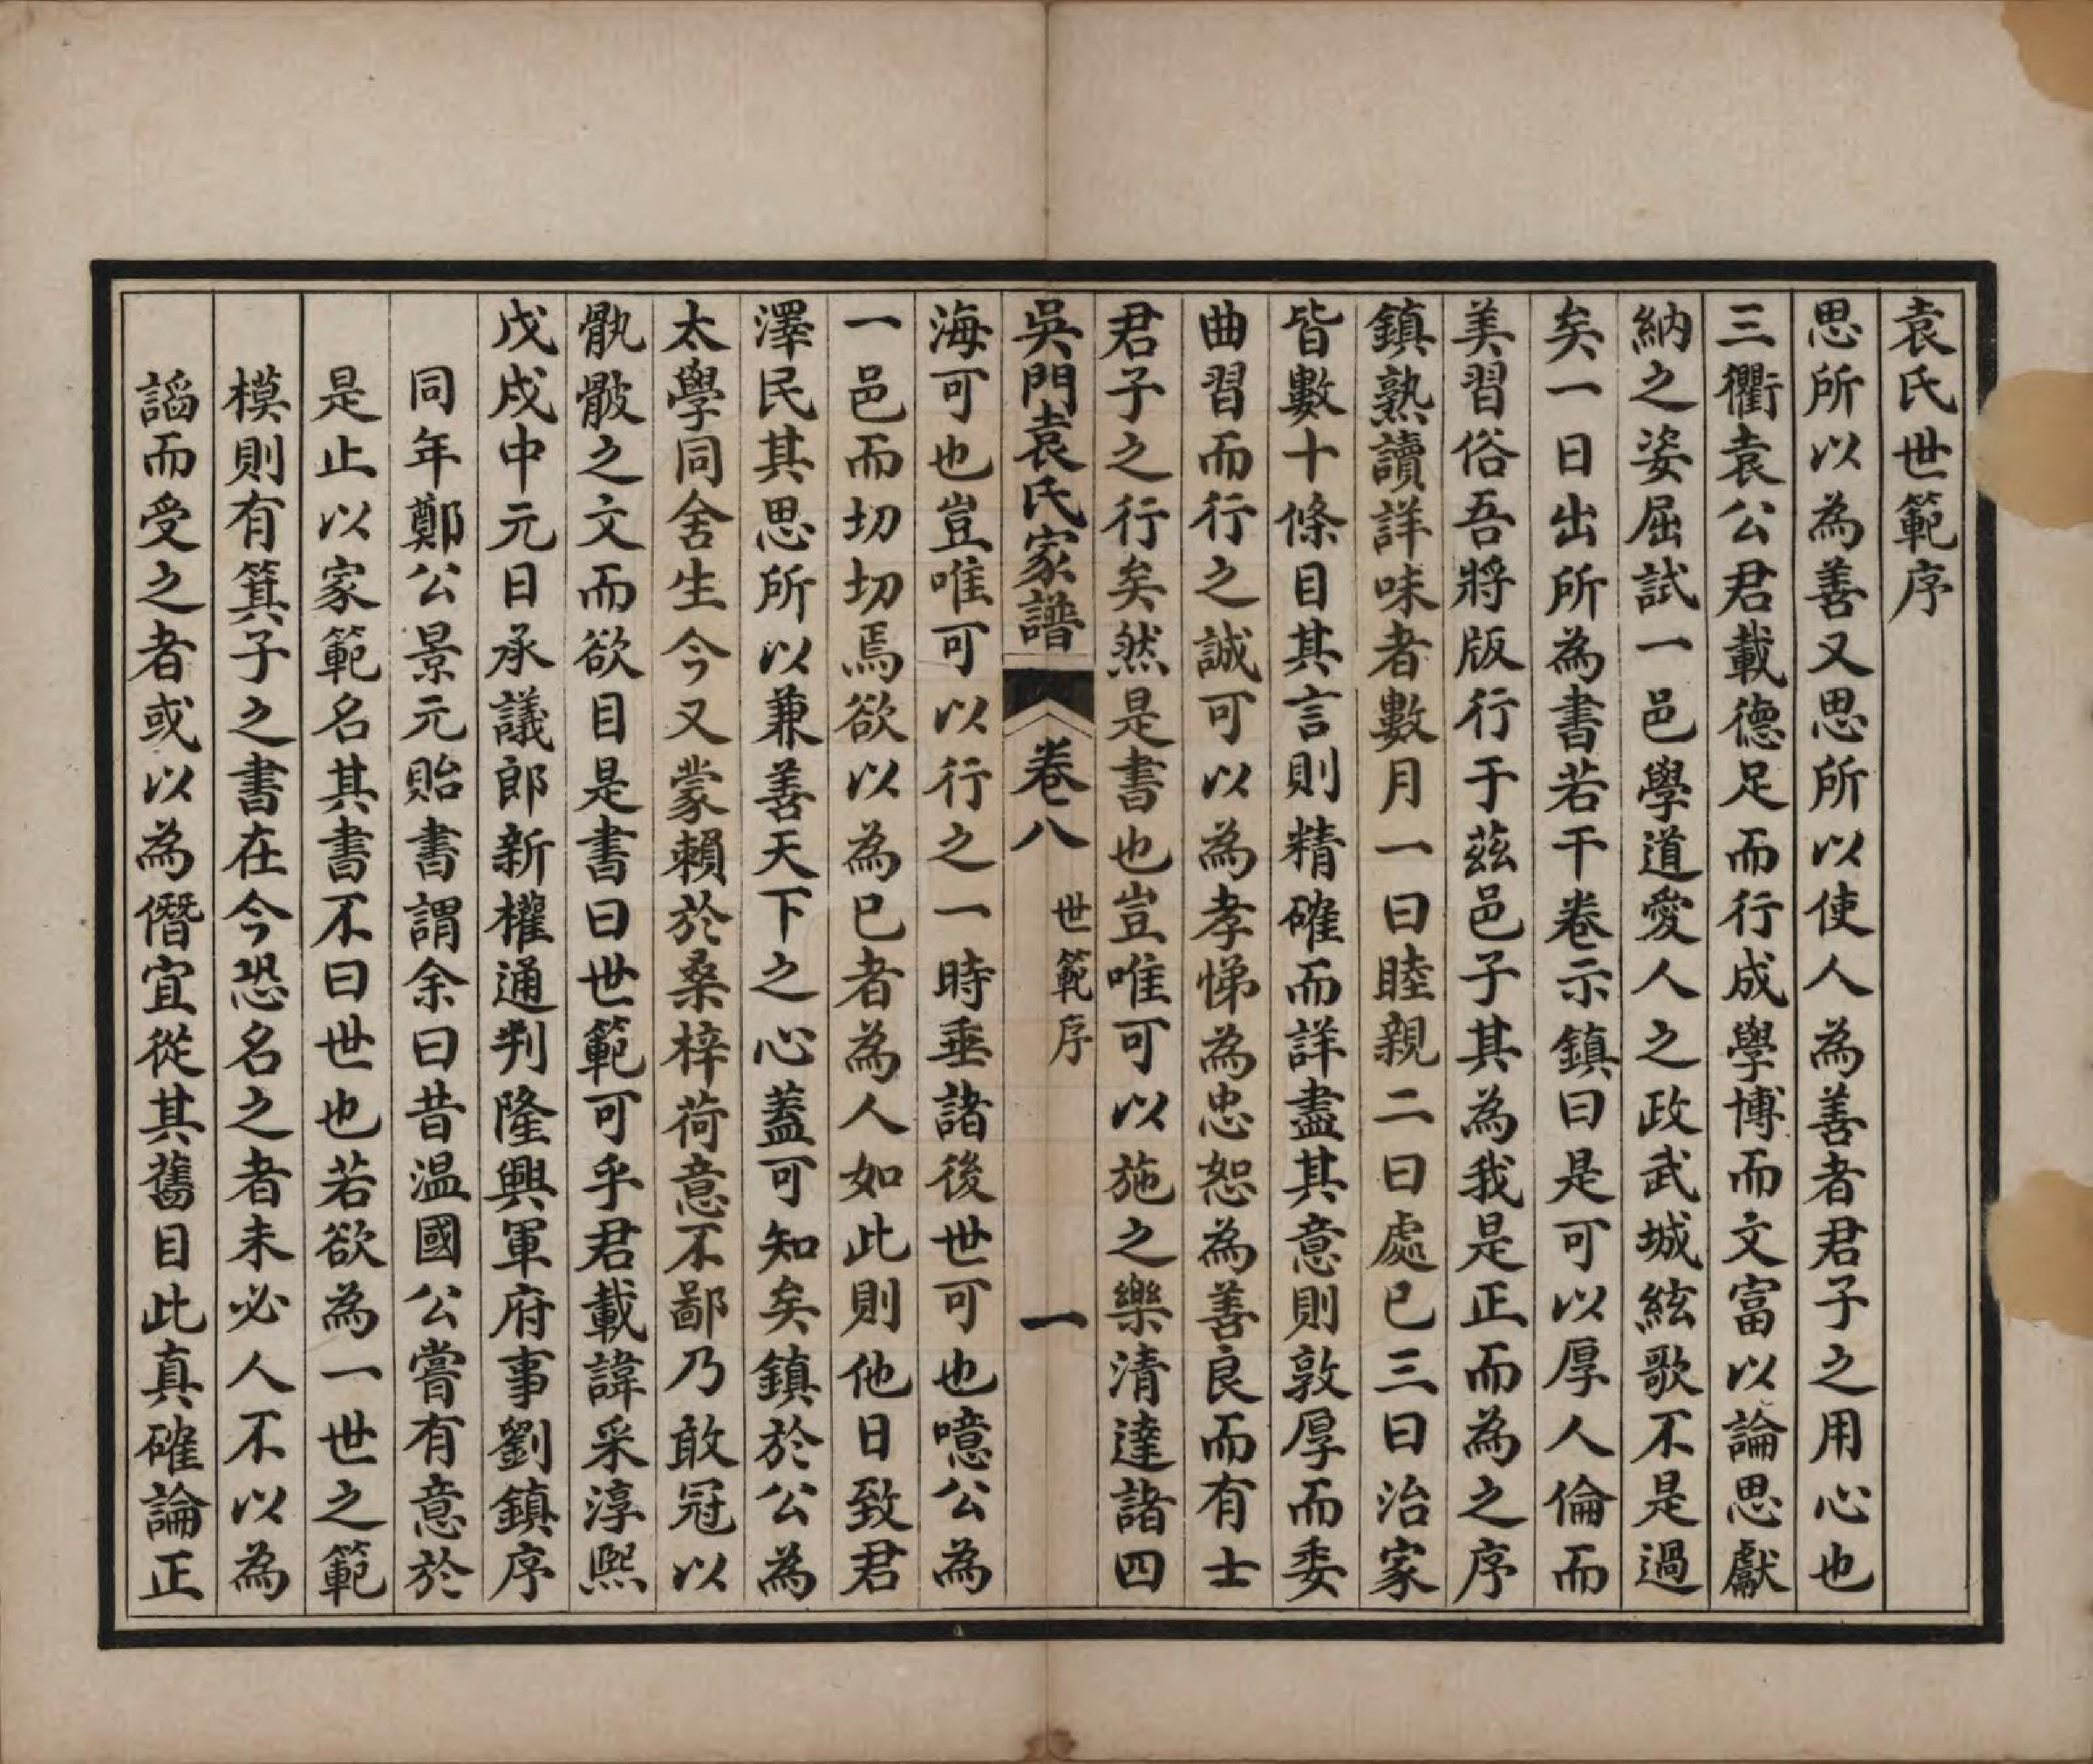 袁氏世範序
思所以為善又思所以使人為善者君子之用心也
三衢袁公君載德足而行成學博而文富以論思獻
納之姿屈試一邑學道愛人之政武城絃歌不是過
矣一日出所為書若干卷示鎮曰是可以厚人倫而
美習俗吾將版行于茲邑子其為我是正而為之序
鎮熟讀詳味者數月一曰睦親二曰處已三曰治家
皆數十條目其言則精確而詳盡其意則敦厚而委
曲習而行之誠可以為孝悌為忠恕為善良而有士
君子之行矣然是書也豈唯可以施之樂清達諸四
吳門袁氏家譜 卷八 世範序 一
海可也豈唯可以行之一時垂諸後世可也噫公為
一邑而切切焉欲以為已者為人如此則他日致君
澤民其思所以兼善天下之心蓋可知矣鎮於公為
太學同舍生今又蒙賴於桑梓荷意不鄙乃敢冠以
骫骳之文而欲目是書曰世範可乎君載諱采淳熙
戊戌中元日承議郎新權通判隆興軍府事劉鎮序
同年鄭公景元貽書謂余曰昔温國公嘗有意於
是止以家範名其書不曰世也若欲為一世之範
模則有箕子之書在今恐名之者未必人不以為
謟而受之者或以為僭宜從其舊目此真確論正